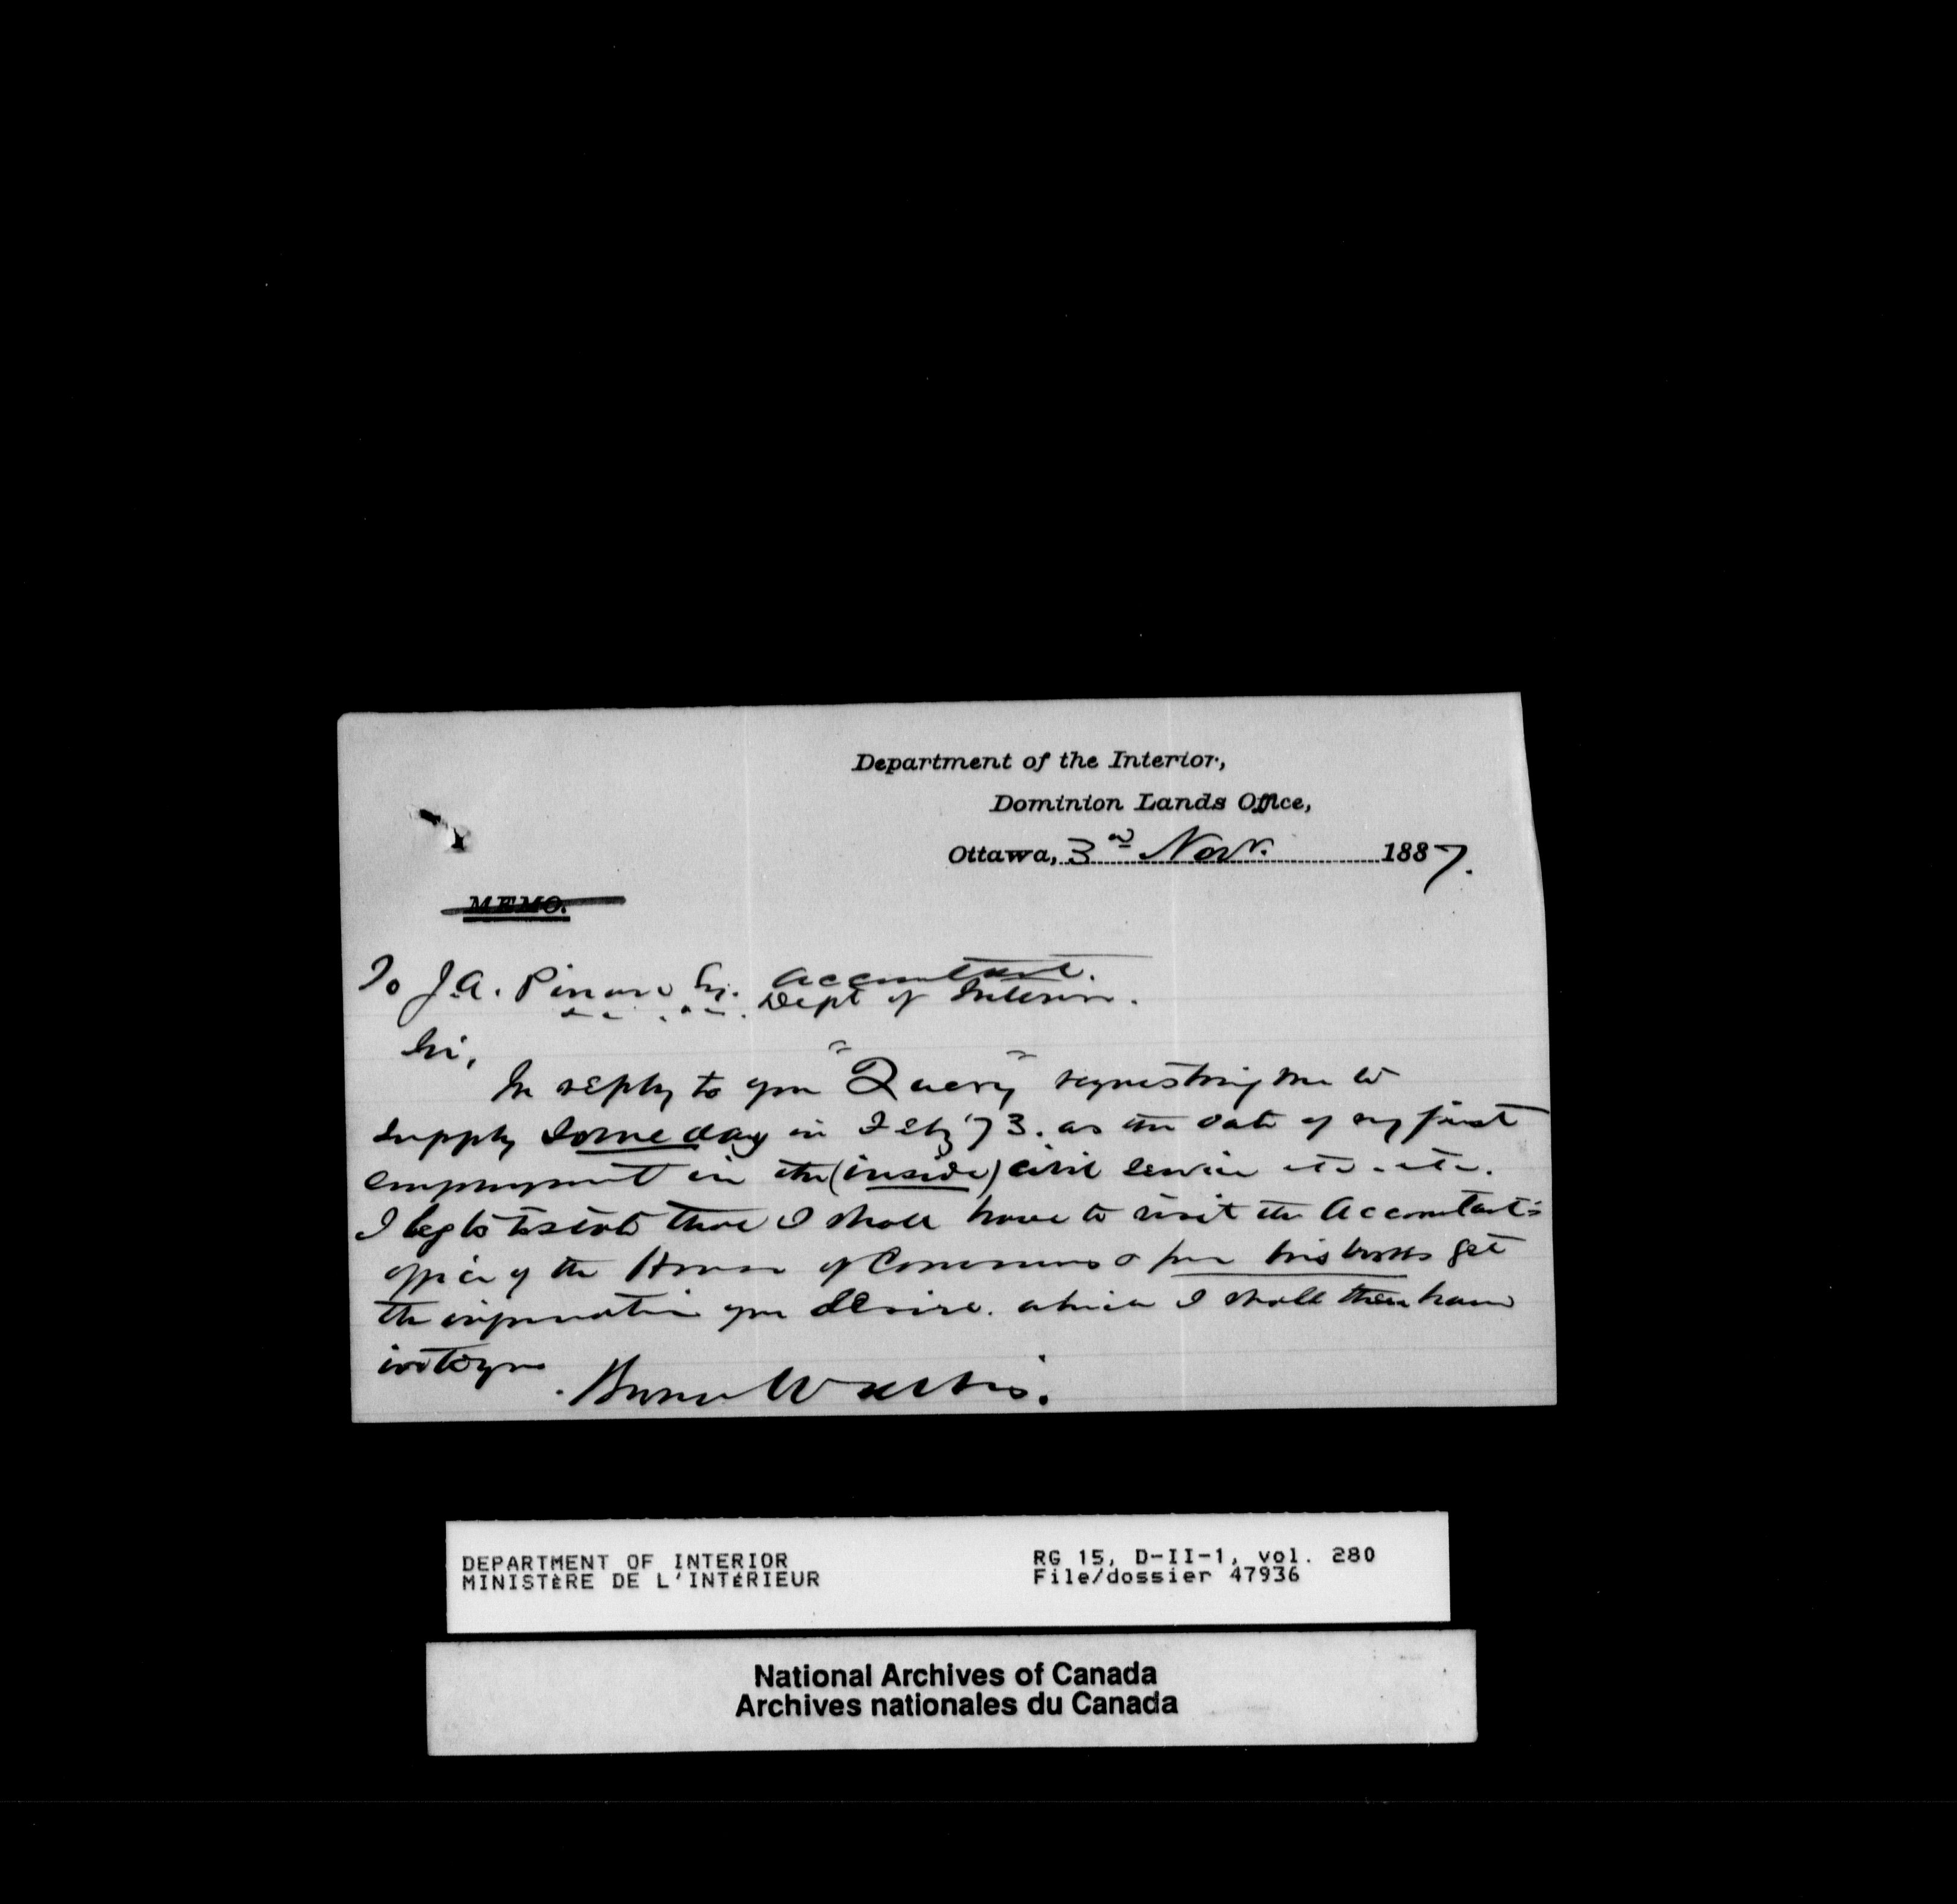 Department of the Interior,
Dominion Lands Office,
Ottawa, 3rd Nov. 1887.
MEMO.
To J.A. Pinard Esq. Accountant.
Dept of Interior.
Sir,
In reply to your "Query" requesting me to
supply some day in Feby '73. as the date of my first
employment in the (inside) civil service etc. etc.
I beg to state that I shall have to visit the Accountant's
office of the House of Commons & from his books get
the information you desire. which I shall then hand
into you
Watts.
DEPARTMENT OF INTERIOR
MINISTÈRE DE L'INTÉRIEUR
RG 15, D-II-1, vol. 280
File/dossier 47936
National Archives of Canada
Archives nationales du Canada